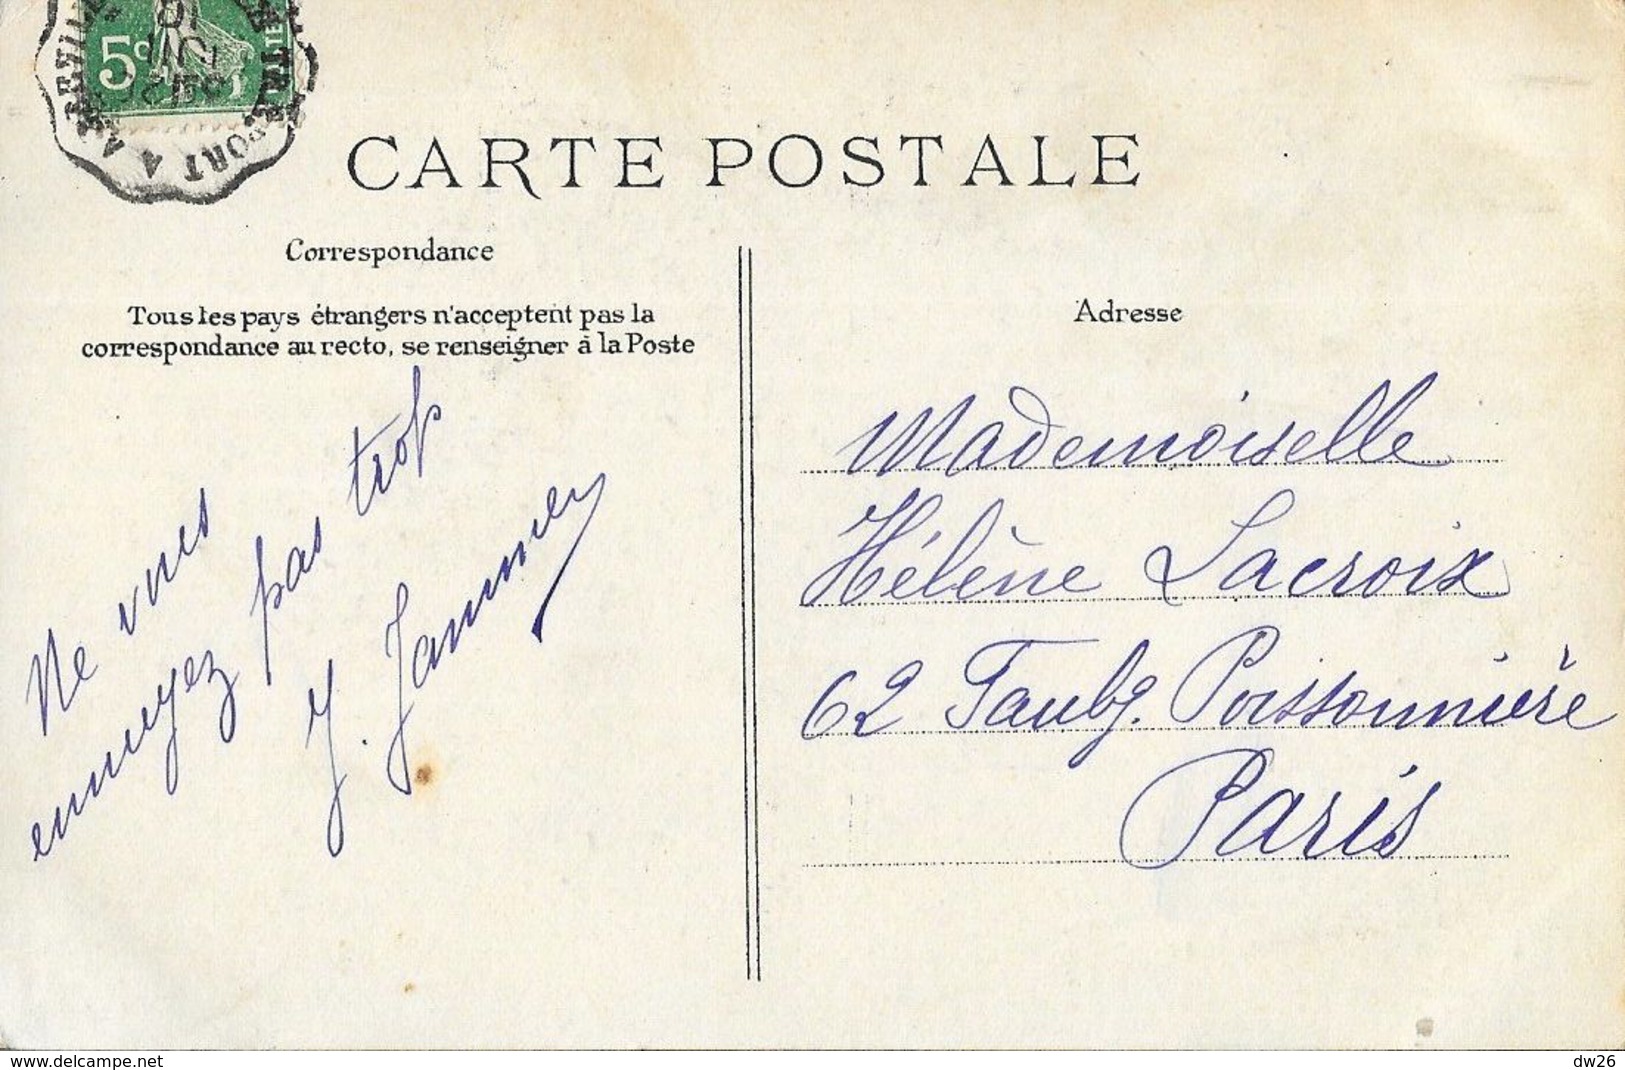 5c
ABBEVILLE
TREPORT
CARTE POSTALE
Correspondance
Tous les pays étrangers n'acceptent pas la
correspondance au recto, se renseigner à la Poste
Ne vous
ennuyez pas trop
Y. Jaunney
Adresse
Mademoiselle
Hélène Lacroix
62 Faubg. Poissonnière
Paris
www.delcampe.net
dw26